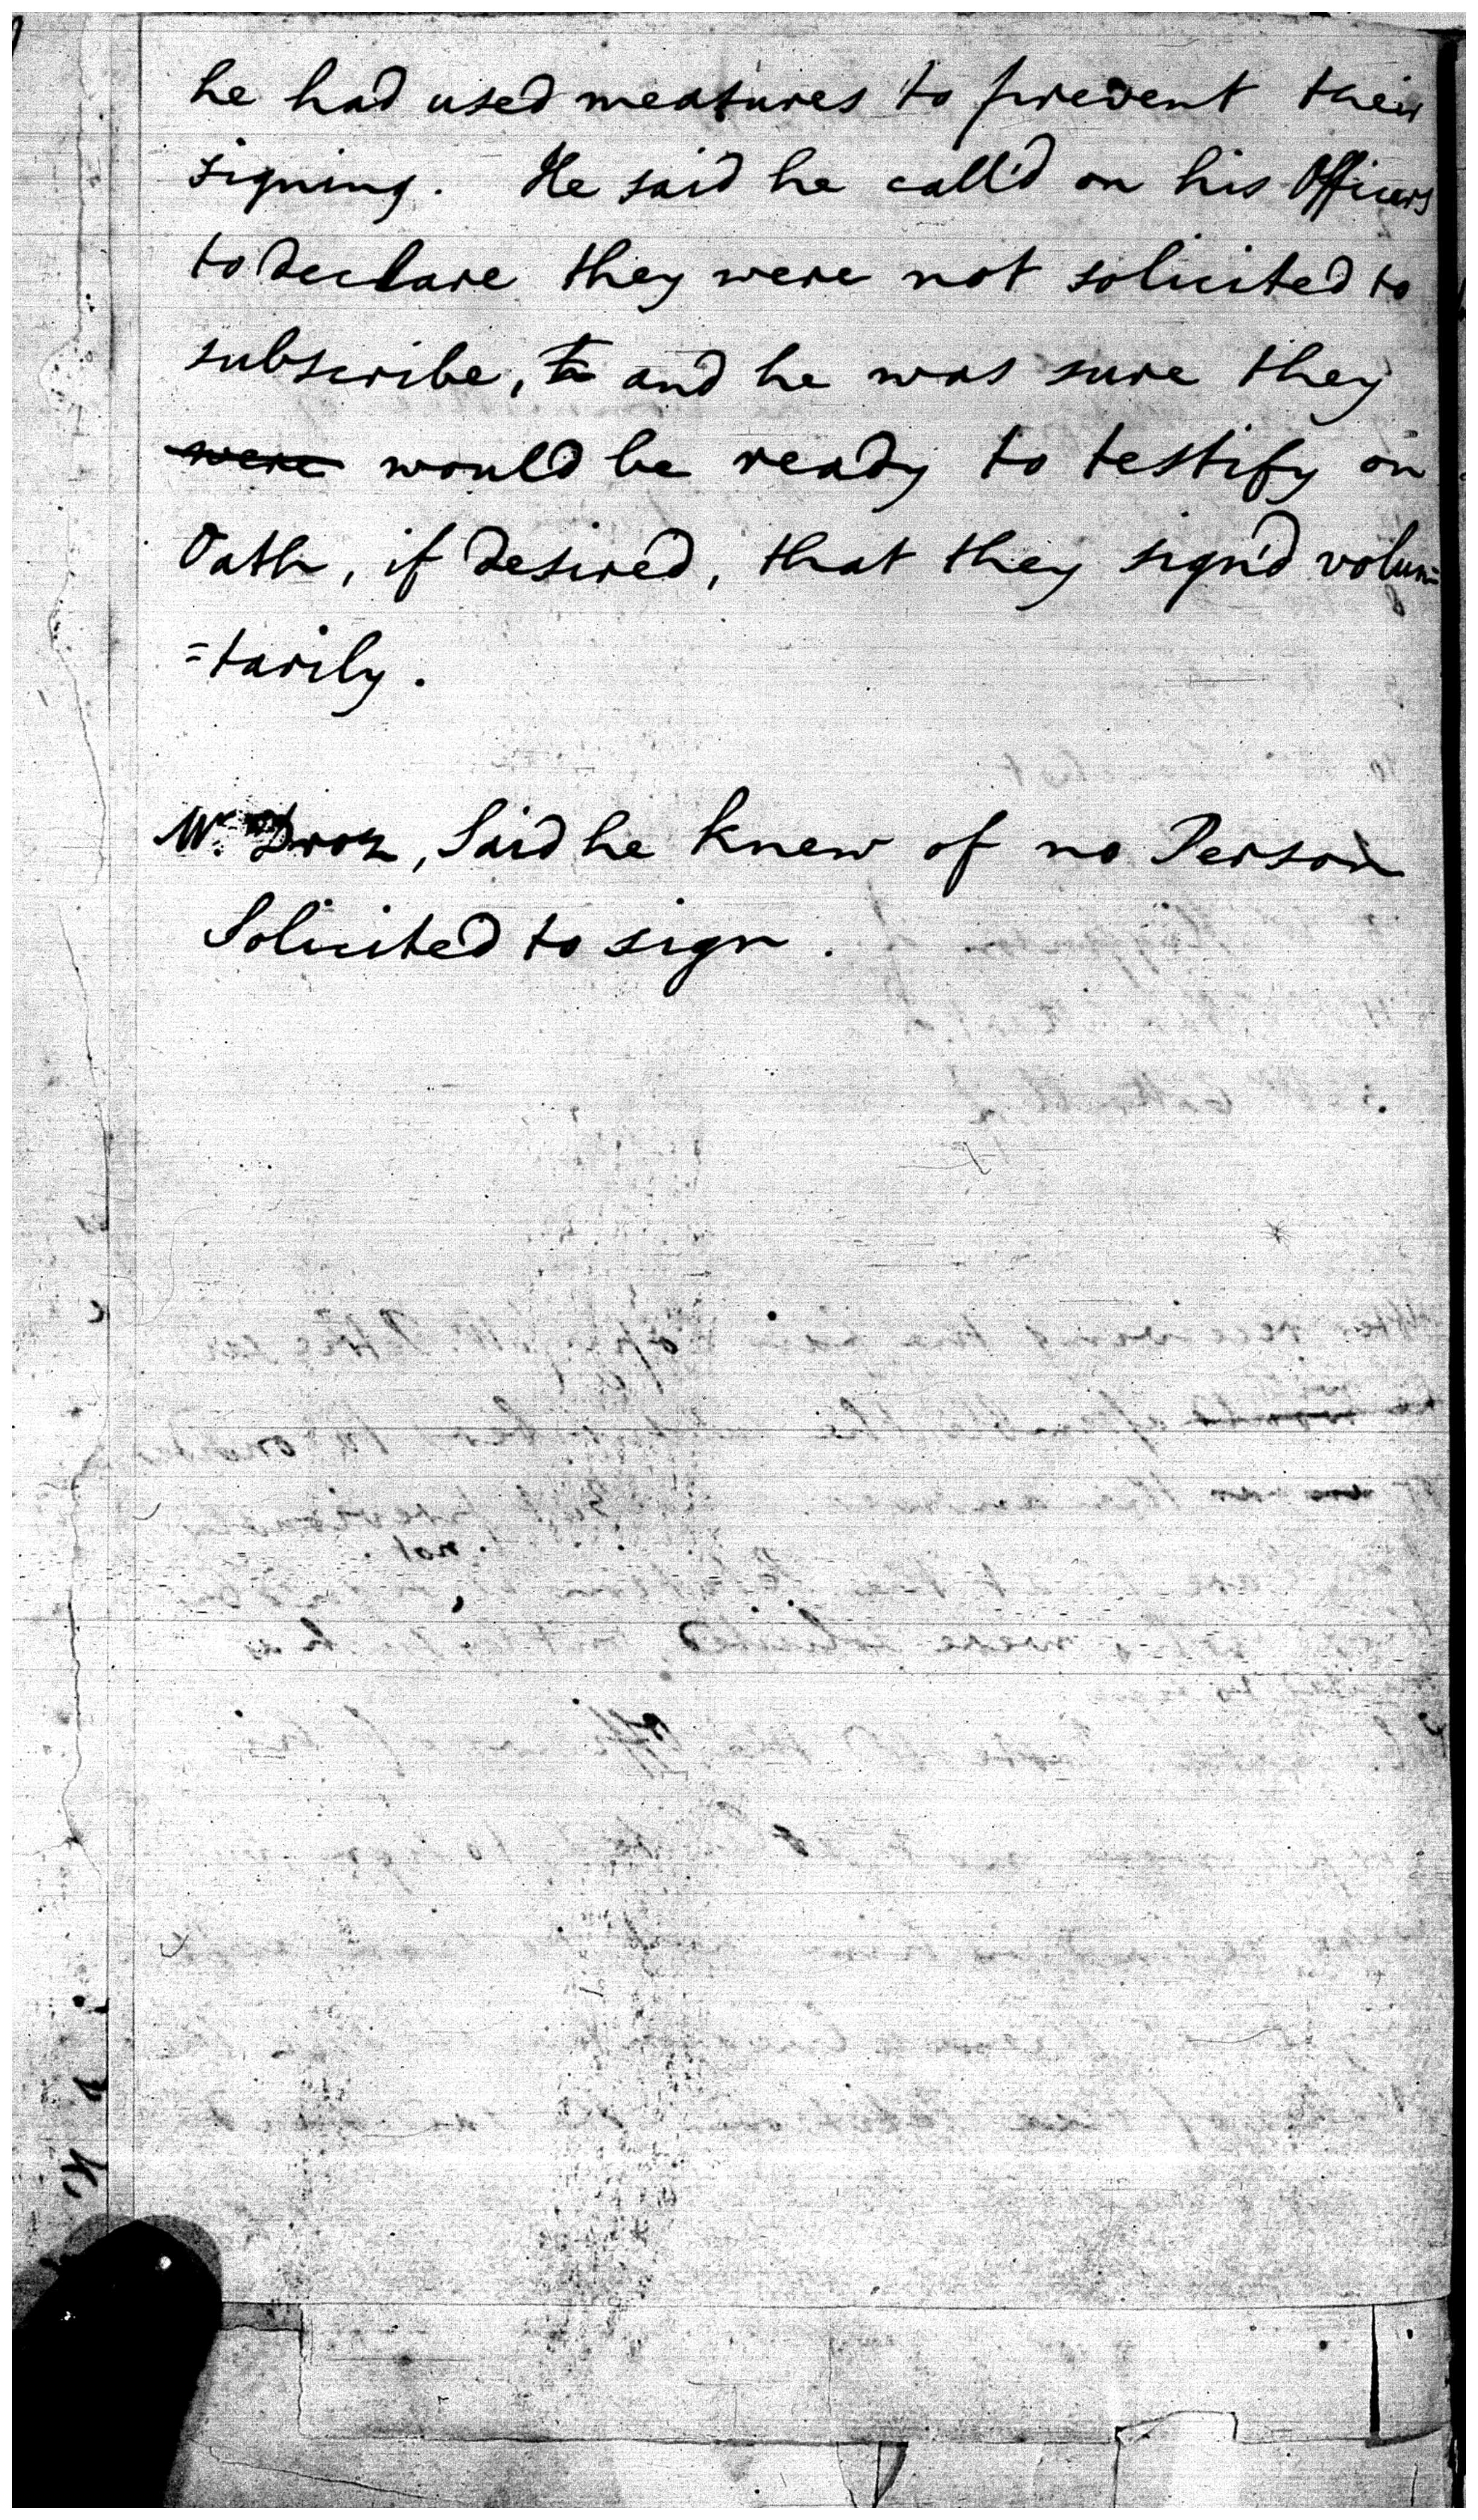 he had used measures to prevent their
signing. He said he call'd on his Officers
to declare they were not solicited to
subscribe, to and he was sure they
were would be ready to testify on
Oath, if desired, that they sign'd volun=
=tarily.
Mr. Droz, Said he knew of no Person
Solicited to sign.